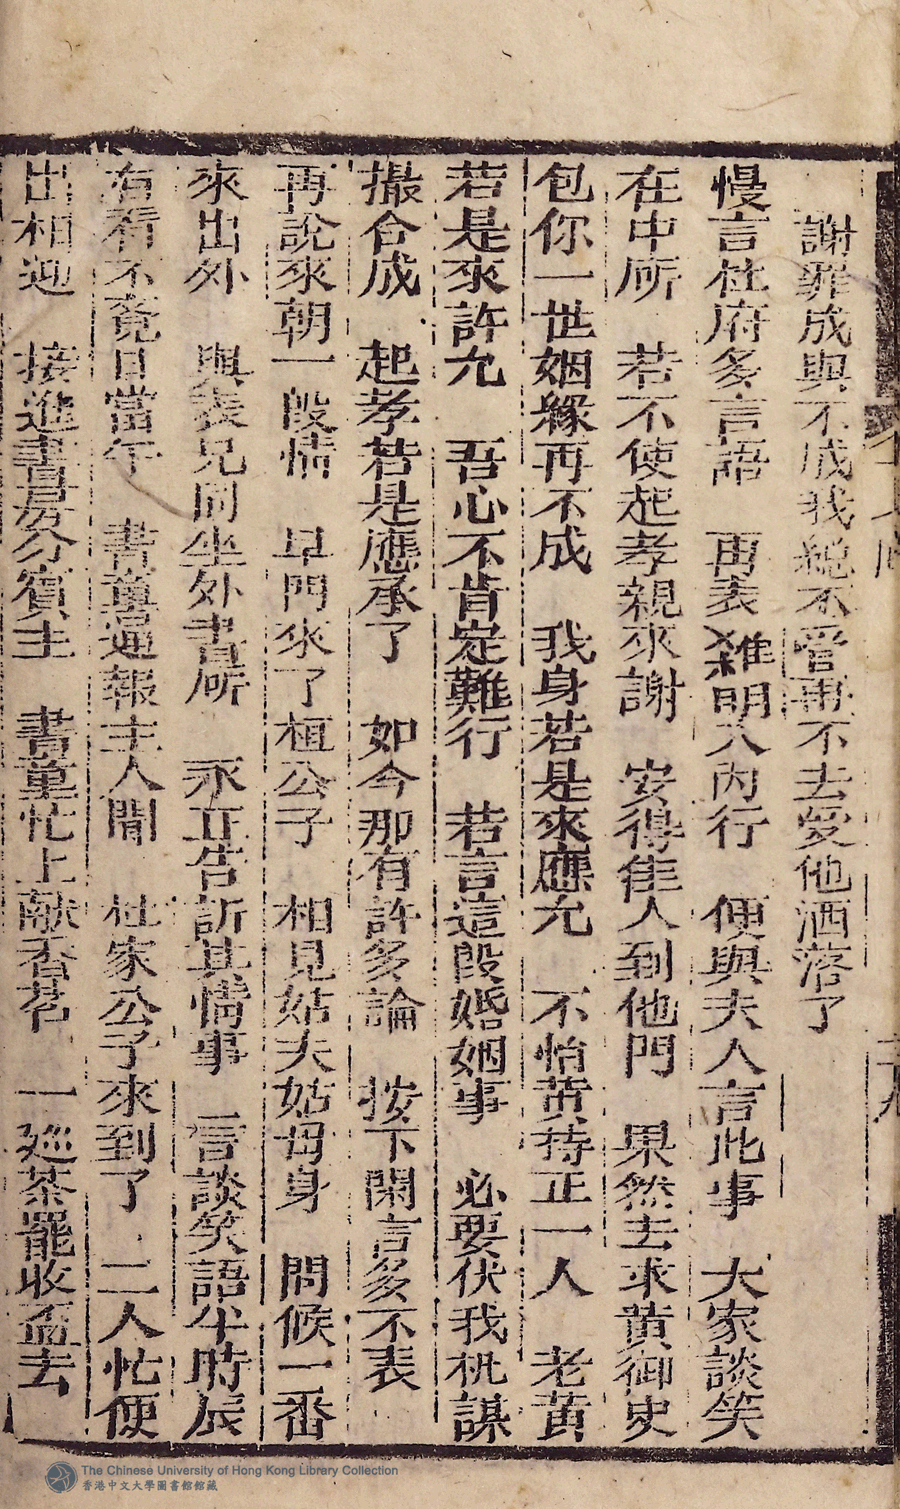 謝罪成與不成我總不管再不去愛他洒落了
慢言杜府多言語　再表雜明入內行　便與夫人言此事　大家談笑
在中所　若不使起孝親來謝　安得隹人到他門　果然去求黃御史
包你一世姻緣再不成　我身若是來應允　不怕黃持正一人　老黃
若是來許允　吾心不肯定難行　若言這段婚姻事　必要伏我机謀
撮合成　起孝若是應承了　如今那有許多論　按下閑言多不表
再說來朝一段情　早門來了桓公子　相見姑夫姑母身　問候一番
來出外　與表兄同坐外書所　永正告訴其情事　一言談笑語半時辰
右看不覔日當午　書童逼報主人聞　杜家公子來到了　二人忙便
出相迎　接進書房分賓主　書童忙上献香茗　一廵茶罷收盃去
The Chinese University of Hong Kong Library Collection
香港中文大學圖書館館藏